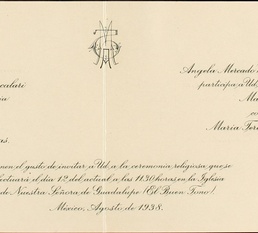 Angela Mercado
participa á Ud.
Ma
María Ter
as.
nen el gusto de invitar a Ud. a la ceremonia religiosa que se
ectuará el día 12 del actual a las 11:30 horas, en la Iglesia
de Nuestra Señora de Guadalupe (El Buen Tono).
México, Agosto de 1938.